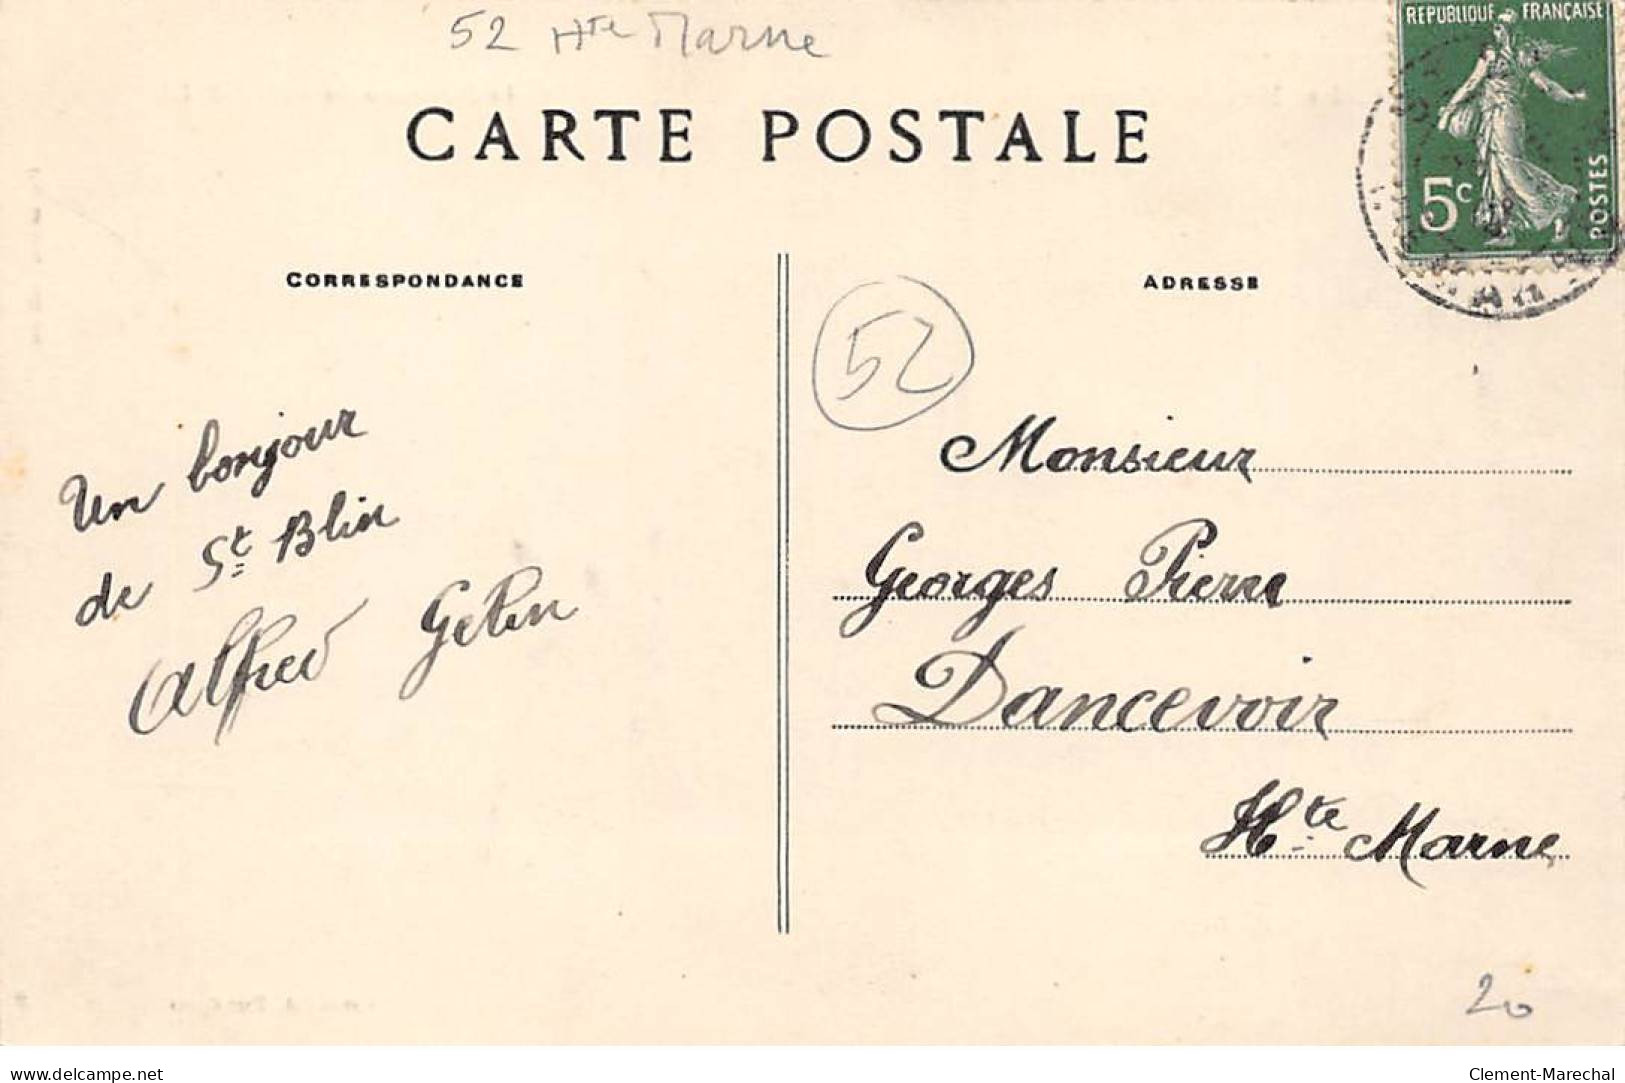 52 Hte Marne
RÉPUBLIQUE FRANÇAISE
CARTE POSTALE
5c
POSTES
CORRESPONDANCE
ADRESSE
52
Un bonjour
de St Blin
Alfred Gelin
Monsieur
Georges Pierre
Dancevoir
Hte Marne
20
www.delcampe.net
Clement-Marechal